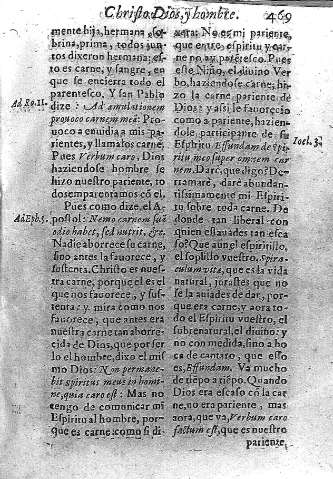 Christo Dios, y hombre. 469
mente hija, hermana, so-
brina, prima, todos jun-
tos dixeron hermana; es-
to es carne, y sangre, en
que se encierra todo el
parentesco. Y san Pablo
dize: Ad æmulationem
prouoco carnem meã: Pro-
uoco a enuidia a mis pa-
rientes, y llamalos carne.
Pues Verbum caro, Dios
haziendose hombre se
hizo nuestro pariente, to
dos emparentamos cõ el.
Pues como dize el A-
postol: Nemo carnem suã
odio habet, sed nutrit, &c.
Nadie aborrece su carne,
sino antes la fauorece, y
sustenta. Christo es nues-
tra carne, porque el es el
que nos fauorece, y sus-
tenta: y mira como nos
fauorece, que antes era
nuestra carne tan aborre-
cida de Dios, que por ser
lo el hombre, dixo el mis
mo Dios: Non permane-
bit spiritus meus in homi-
ne, quia caro est: Mas no
tengo de comunicar mi
Espiritu al hombre, por-
que es carne: como si di-
Ad Ro. 11.
Ad Eph. 5.
xera: No es mi pariente,
que entre espiritu y car-
ne no ay parẽtesco. Pues
este Niño, el diuino Ver
bo, haziendose carne; hi-
zo la carne pariente de
Dios: y assi le fauorecio
como a pariente, hazien-
dole participante de su
Espiritu. Effundam de spi-
ritu meo super omnem car-
nem. Darè, que digo? De-
rramarè, darè abundan-
tissimamente mi Espi-
ritu sobre toda carne. De
donde tan liberal con
quien essauades tan esca
so? Que aun el espiritillo,
el soplillo vuestro, Spira-
culum vitæ, que es la vida
natural,
la auiades de dar, por-
que era carne, y aora to-
do el Espiritu vuestro, el
sobrenatural, el diuino; y
no con medida, sino a bo
ca de cantaro, que esso
es, Effundam. Va mucho
de tiẽpo a tiẽpo. Quando
Dios era escaso cõ la car
ne, no era pariente, mas
aora, que va, Verbum caro
factum est, que es nuestro
pariente,
Ioel. 3.